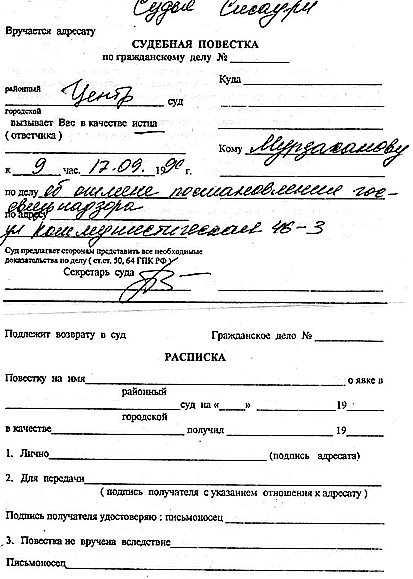 Судья Сисаури
Вручается адресату
СУДЕБНАЯ ПОВЕСТКА
по гражданскому делу №
Куда
районный
Центр суд
городской
вызывает Вас в качестве истца
( ответчика )
Кому Мурзаханову
к 9 час. 17.09. 19 г.
по делу об отмене постановления гос-
по адресу
ул Коммунистическая 48-3
Суд предлагает сторонам представить все необходимые
доказательства по делу ( ст.ст. 50, 64 ГПК РФ )
Секретарь суда
Подлежит возврату в суд
Гражданское дело №
РАСПИСКА
Повестку на имя о явке в
районный
суд на « » 19
городской
в качестве получил 19
1. Лично (подпись адресата)
2. Для передачи
( подпись получателя с указанием отношения к адресату )
Подпись получателя удостоверяю : письмоносец
3. Повестка не вручена вследствие
Письмоносец